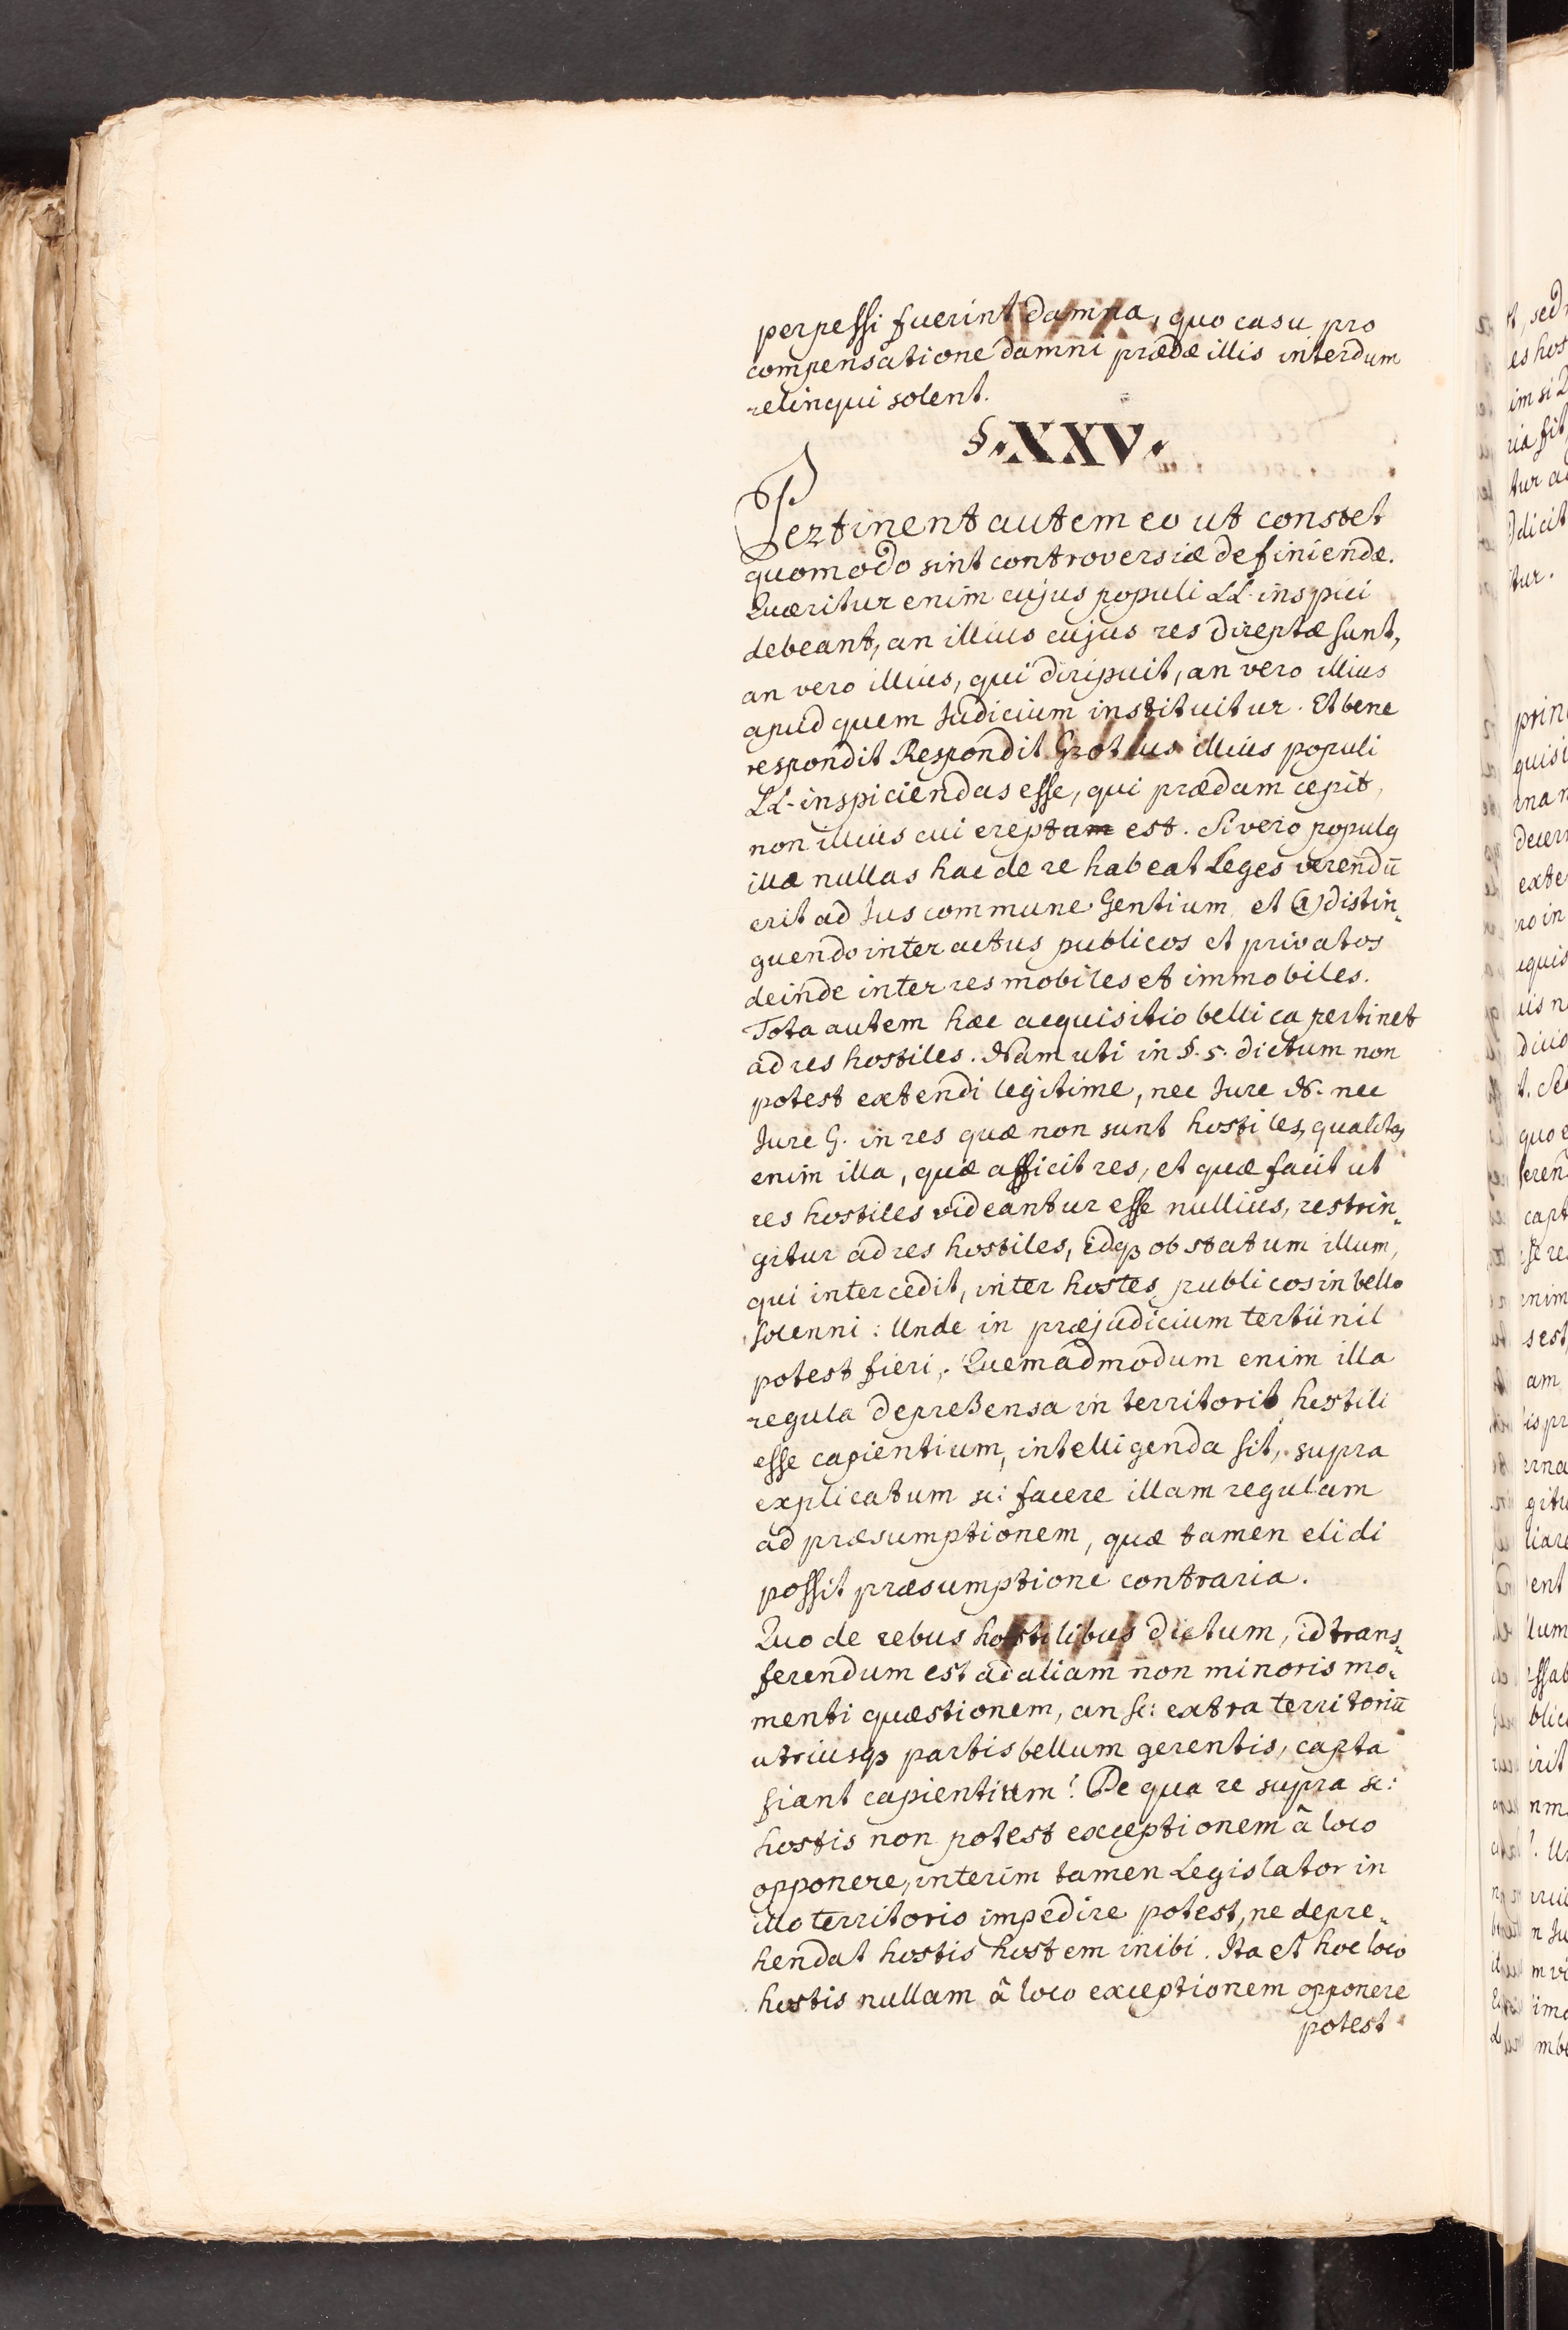 perpessi fuerint damna, quo casu pro
compensatione damni prædæ illis interdum
relinqui solent.
§. XXV.
Pertinent autem eo ut constet
quomodo sint controversiæ definiendæ.
Quæritur enim cujus populi LL. inspici
debeant, an illius cujus res direptæ sunt,
an vero illius, qui diripuit, an vero illius
apud quem Judicium instituitur. Et bene
respondit Respondit Grotius illius populi
LL. inspiciendas esse, qui prædam cepit,
non illius cui ereptam est. Si vero populq
illæ nullas hac de re habeat Leges verendū
erit ad Jus commune Gentium, et (a) distin„
guendo inter actus publicos et privatos
deinde inter res mobiles et immobiles.
Tota autem hæc acquisitio bellica pertinet
ad res hostiles. Nam uti in §. 5. dictum non
potest extendi legitime, nec Jure N. nec
Jure G. in res quæ non sunt hostiles, qualitas
enim illa, quæ afficit res, et quæ facit ut
res hostiles videantur esse nullius, restrin„
gitur ad res hostiles, idqꝫ ob statum illum,
qui intercedit, inter hostes publicos in bello
solenni: Unde in præjudicium tertii nil
potest fieri,. Quemadmodum enim illa
regula deprehensa in territorio hostili
esse capientium, intelligenda sit, supra
explicatum sc: facere illam regulam
ad præsumptionem, quæ tamen elidi
possit præsumptione contraria.
Quo de rebus hostilibus dictum, id trans„
ferendum est ad aliam non minoris mo„
menti quæstionem, an sc: extra territoriū
utriusqꝫ partis bellum gerentis, capta
fiant capientium? De qua re supra sc:
hostis non potest exceptionem â loco
opponere, interim tamen Legislator in
illo territorio impedire potest, ne depre„
hendat hostis hostem inibi. Ita et hoc loco
hostis nullam â loco exceptionem opponere
potest